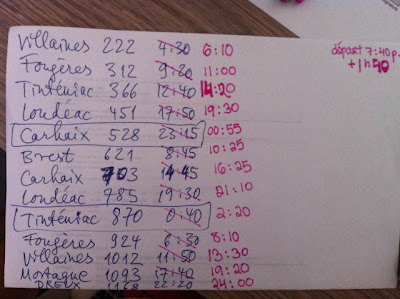 Villaines 222 4:30 6:10
Fougères 312 9:20 11:00
Tinténiac 366 12:40 14:20
Loudéac 451 17:50 19:30
Carhaix 528 23:15 00:55
Brest 621 8:45 10:25
Carhaix 703 14:45 16:25
Loudéac 785 19:30 21:10
Tinténiac 870 0:40 2:20
Fougères 924 6:30 8:10
Villaines 1012 11:50 13:30
Mortagne 1093 17:40 19:20
DREUX 22:20 24:00
départ 7:40 p.
+1h40